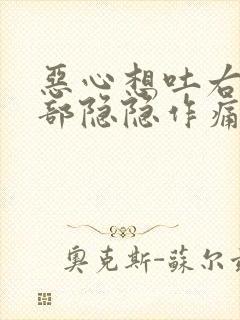 恶心想吐右
部隐隐作痛
奥克斯-蘇尔